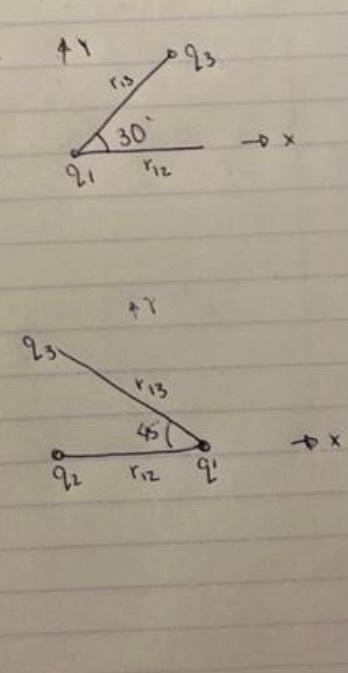 Y
q3
r13
30°
x
q1
r12
Y
q3
r13
45
x
q2
r12
q1